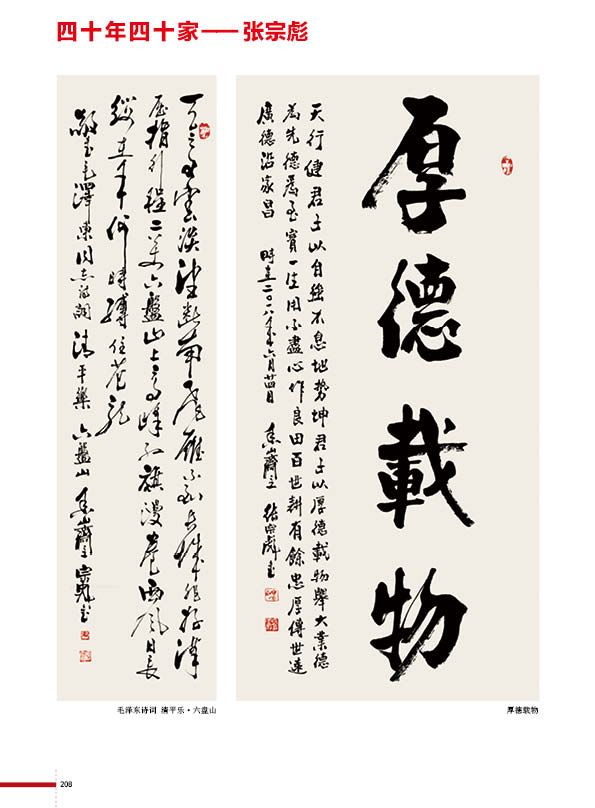 四十年四十家——张宗彪
厚德載物
天行健君子以自強不息地勢坤君子以厚德載物舉大業德
為先德為至寶一生用不盡心作良田百世耕有餘忠厚傳世遠
廣德沿家昌 時在二〇一八年六月廿四日 張宗彪书
天高雲淡望斷南飛雁不到長城非好漢
屈指行程二萬六盤山上高峰紅旗漫卷西風日長
纓在手何時縛住蒼龍
敬书毛澤東同志诗詞 清平樂 六盤山 宗彪书
毛泽东诗词 清平乐·六盘山
厚德载物
208